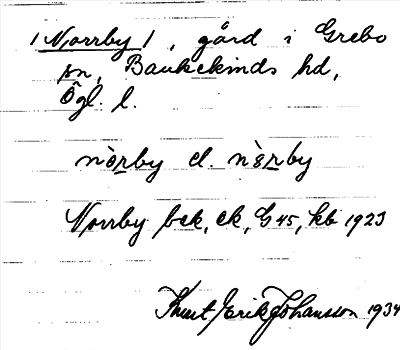 /Norrby/, gård i Grebo
sn, Bankekinds hd,
Ögl. l.
nòrby el. nὲrby
Norrby bek, ek, G 45, kb 1923
Knut Erik Johansson 1934